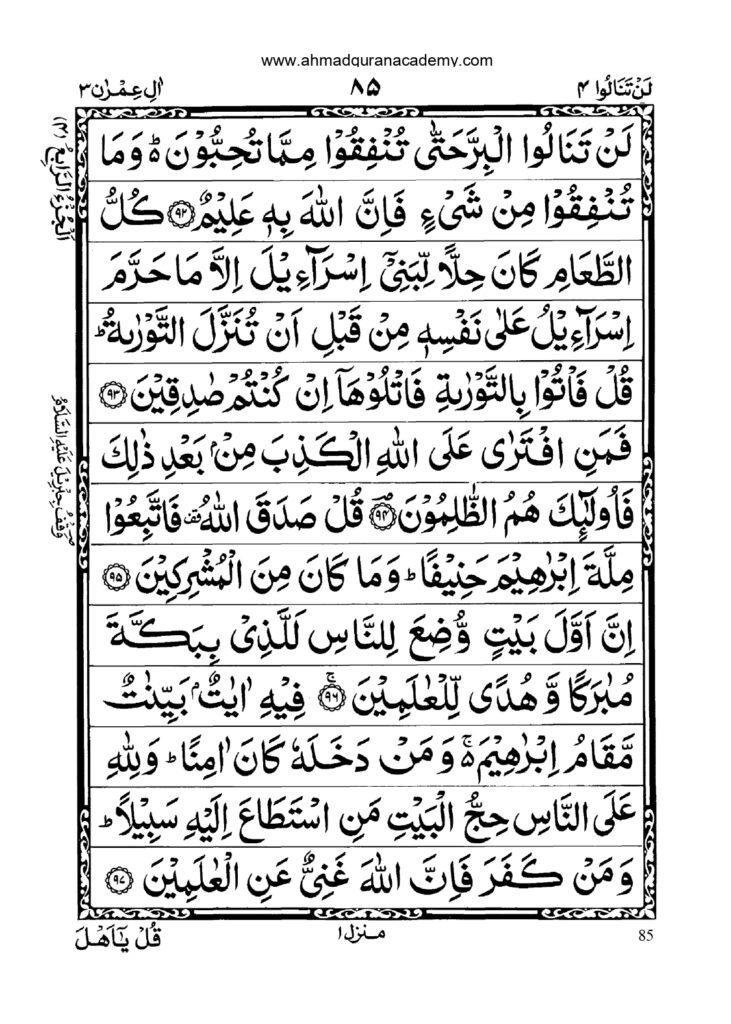 www.ahmadquranacademy.com
لَنْ تَنَالُوا ۴ ۸۵ اٰلِ عِمْرٰن ۳
لَنْ تَنَالُوا الْبِرَّ حَتّٰى تُنْفِقُوْا مِمَّا تُحِبُّوْنَ ؕ وَمَا
تُنْفِقُوْا مِنْ شَیْءٍ فَاِنَّ اللّٰهَ بِهٖ عَلِیْمٌ ﴿۹۲﴾ كُلُّ
الطَّعَامِ كَانَ حِلًّا لِّبَنِیْۤ اِسْرَآءِیْلَ اِلَّا مَا حَرَّمَ
اِسْرَآءِیْلُ عَلٰى نَفْسِهٖ مِنْ قَبْلِ اَنْ تُنَزَّلَ التَّوْرٰىةُ ؕ
قُلْ فَاْتُوْا بِالتَّوْرٰىةِ فَاتْلُوْهَاۤ اِنْ كُنْتُمْ صٰدِقِیْنَ ﴿۹۳﴾
فَمَنِ افْتَرٰى عَلَى اللّٰهِ الْكَذِبَ مِنْۢ بَعْدِ ذٰلِكَ
فَاُولٰٓىِٕكَ هُمُ الظّٰلِمُوْنَ ﴿۹۴﴾ قُلْ صَدَقَ اللّٰهُ فَاتَّبِعُوْا
مِلَّةَ اِبْرٰهِیْمَ حَنِیْفًا ؕ وَمَا كَانَ مِنَ الْمُشْرِكِیْنَ ﴿۹۵﴾
اِنَّ اَوَّلَ بَیْتٍ وُّضِعَ لِلنَّاسِ لَلَّذِیْ بِبَكَّةَ
مُبٰرَكًا وَّهُدًى لِّلْعٰلَمِیْنَ ﴿۹۶﴾ۚ فِیْهِ اٰیٰتٌۢ بَیِّنٰتٌ
مَّقَامُ اِبْرٰهِیْمَ ۚ۬ وَمَنْ دَخَلَهٗ كَانَ اٰمِنًا ؕ وَلِلّٰهِ
عَلَى النَّاسِ حِجُّ الْبَیْتِ مَنِ اسْتَطَاعَ اِلَیْهِ سَبِیْلًا ؕ
وَمَنْ كَفَرَ فَاِنَّ اللّٰهَ غَنِیٌّ عَنِ الْعٰلَمِیْنَ ﴿۹۷﴾
اَلْجُزْءُ الرَّابِعُ (۴)
وَقْفُ جِبْرِیْلَ عَلَیْهِ السَّلَامُ
85 منزل ۱ قُلْ یٰۤاَهْلَ